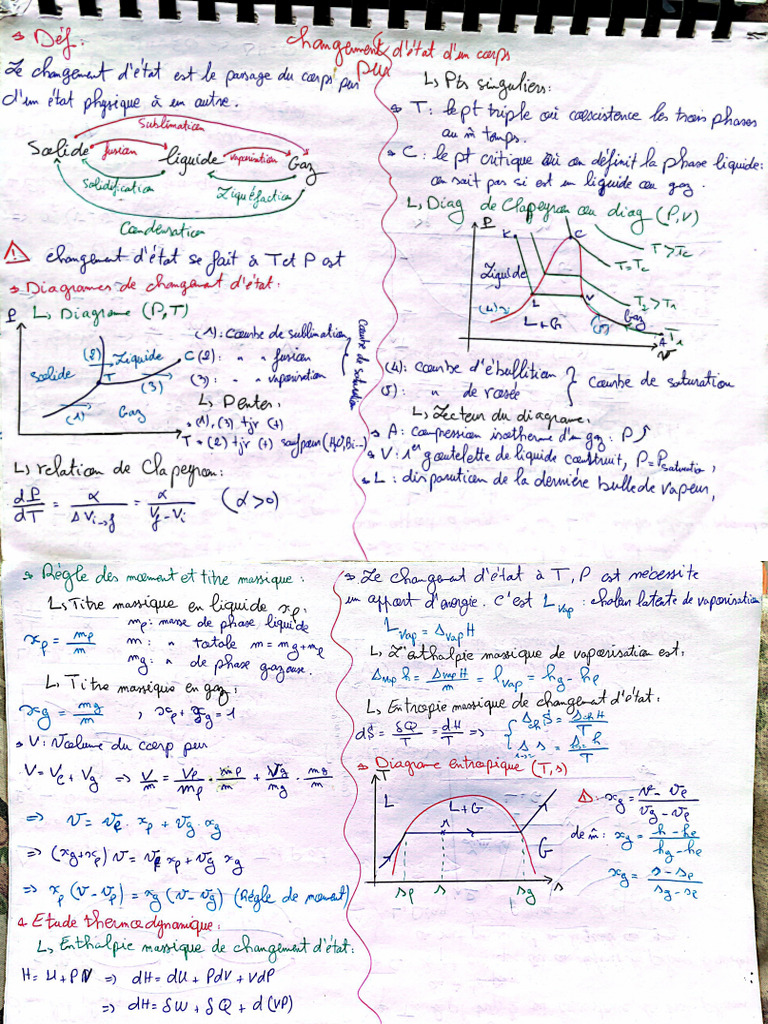 changement d'état d'un corps pur
→ Déf:
Le changement d'état est le passage du corps pur
d'un état physique à un autre.
Sublimation
Solide fusion liquide vaporisation Gaz
Solidification Liquéfaction
Condensation
⚠ changement d'état se fait à T et P cst
→ Diagrames de changemat d'état:
L, Diagrame (P,T)
P
(2) Liquide
Solide T C
(3)
(1) Gaz
T
(1): Courbe de sublimation
(2): " " fusion
(3): " " vaporisation
Courbe de saturation
L, Pentes:
• (1), (3) tjr (+)
• (2) tjr (+) sauf pour (H₂O, Bi...)
L, relation de Clapeyron:
dP/dT = α/ΔV i→f = α/(Vf - Vi) (α>0)
L, Pts singuliers:
→ T: le pt triple où coexistence les trois phases
au m̂ temps.
• C: le pt critique où on définit la phase liquide:
on sait pas si est un liquide ou gaz.
L, Diag de Clapeyron ou diag (P,v)
P
K C T > Tc
T = Tc
Liquide
T₂ > T₁
L V Gaz
(4) L + G (5) T₁
A v
(4): courbe d'ébullition
(5): " de rosée
} courbe de saturation
L, Lecteur du diagrame:
→ A: compression isotherme d'un gaz: P↗
• V: 1er goutelette de liquide construit, P = Psaturation,
• L: disparution de la derniére bulle de vapeur,
→ Régle des moement et titre massique:
L, Titre massique en liquide xₚ:
xₚ = mₚ/m
mₚ: masse de phase liquide
m: " totale m = mg + mₚ
mg: " de phase gazeuse.
L, Titre massique en gaz:
xg = mg/m , xₚ + xg = 1
→ V: Volume du corp pur
V = Vₚ + Vg ⇒ V/m = Vₚ/mₚ · mₚ/m + Vg/mg · mg/m
⇒ v = vₚ · xₚ + vg · xg
⇒ (xg + xₚ) v = vₚ xₚ + vg xg
⇒ xₚ (v - vₚ) = xg (v - vg) (Régle de moment)
4. Etude thermodynamique:
L, Enthalpie massique de changement d'état:
H = U + PV ⇒ dH = dU + PdV + VdP
⇒ dH = δW + δQ + d(VP)
→ Le changemat d'état à T, P cst nécessite
un apport d'énergie. C'est Lvap: chaleur latete de vaporisation
Lvap = ΔvapH
L, L'enthalpie massique de vaporisation est:
Δvap h = ΔvapH/m = lvap = hg - hₚ
L, Entropie massique de changemat d'état:
dS = δQ/T = dH/T ⇒ { Δch S = Δch H/T
Δ s = Δ h/T
→ Diagrame entropique (T,s)
T
L L + G
G
sₚ s sg s
⚠: xg = (v - vₚ)/(vg - vₚ)
de m̂: xg = (h - hₚ)/(hg - hₚ)
xg = (s - sₚ)/(sg - sₚ)